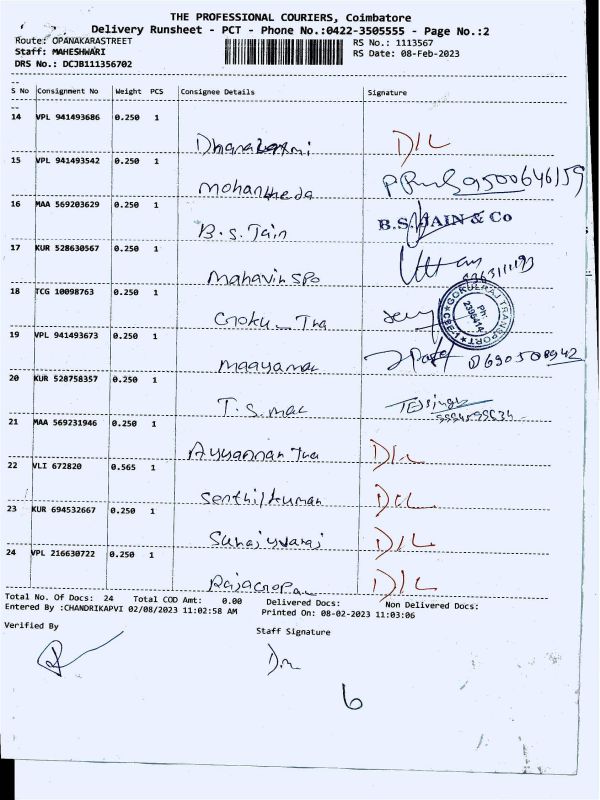 THE PROFESSIONAL COURIERS, Coimbatore
Delivery Runsheet - PCT - Phone No.:0422-3505555 - Page No.:2
Route: OPANAKARASTREET RS No.: 1113567
Staff: MAHESHWARI RS Date: 08-Feb-2023
DRS No.: DCJB111356702
S No Consignment No Weight PCS Consignee Details Signature
14 VPL 941493686 0.250 1
Dhanalaxmi D/L
15 VPL 941493542 0.250 1
Mohan 9500646159
16 MAA 569203629 0.250 1
B.S. Jain B.S. JAIN & Co
17 KUR 528630567 0.250 1
Mahavir
18 TCG 10098763 0.250 1
Goku Tra GOKULRAJ TRANSPORT Ph: 2398414
19 VPL 941493673 0.250 1
Maayamac
20 KUR 528758357 0.250 1
T.S. mac
21 MAA 569231946 0.250 1
Ayyannan Tra D/L
22 VLI 672820 0.565 1
Senthilkumar D/L
23 KUR 694532667 0.250 1
D/L
24 VPL 216630722 0.250 1
D/L
Total No. Of Docs: 24 Total COD Amt: 0.00 Delivered Docs: Non Delivered Docs:
Entered By :CHANDRIKAPVI 02/08/2023 11:02:58 AM Printed On: 08-02-2023 11:03:06
Verified By
Staff Signature
6